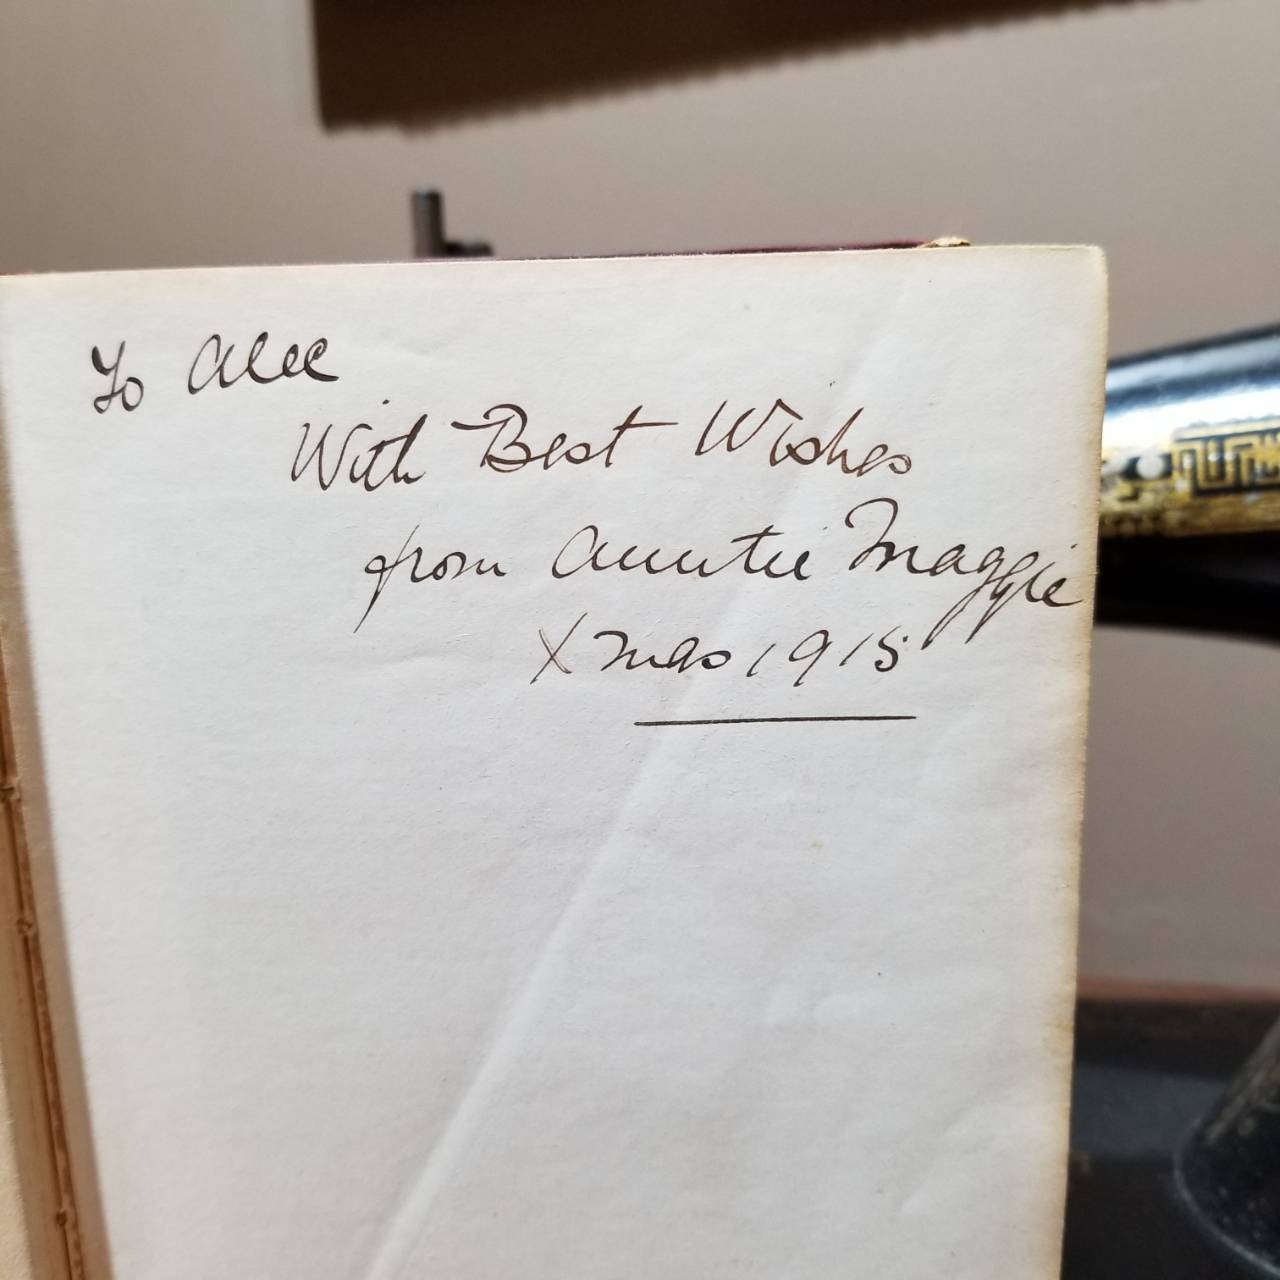 To Alec
With Best Wishes
from Auntie Maggie
Xmas 1915